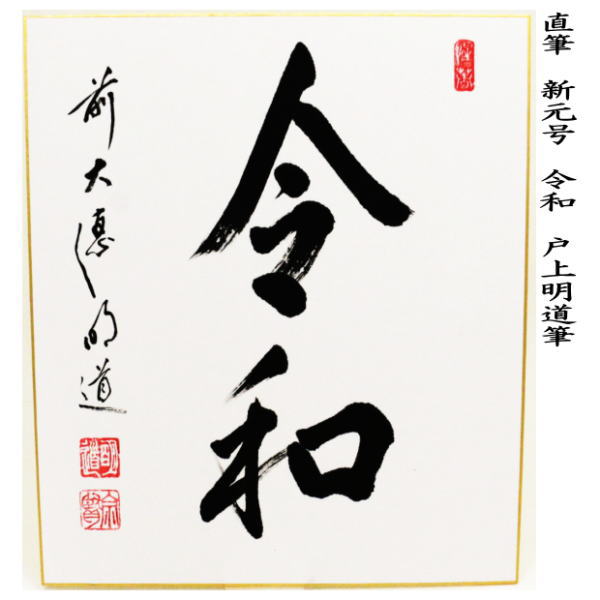 直筆 新元号 令和 戸上明道筆
令和
前大徳明道
明道